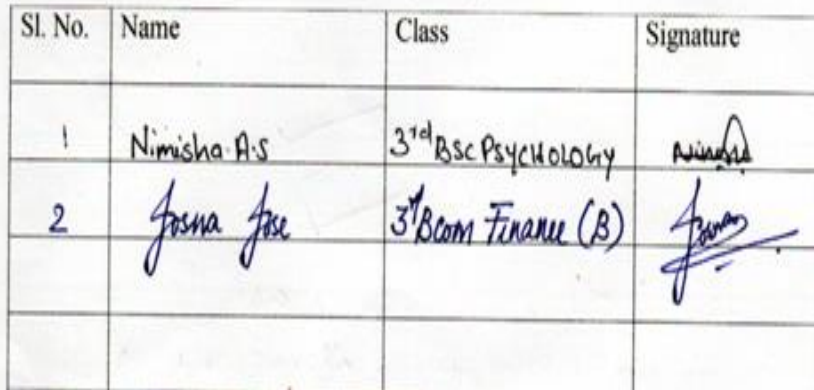 Sl. No. Name Class Signature
1 Nimisha A.S 3rd BSC PSYCHOLOGY
2 Josna Jose 3rd Bcom Finance (B) Josna